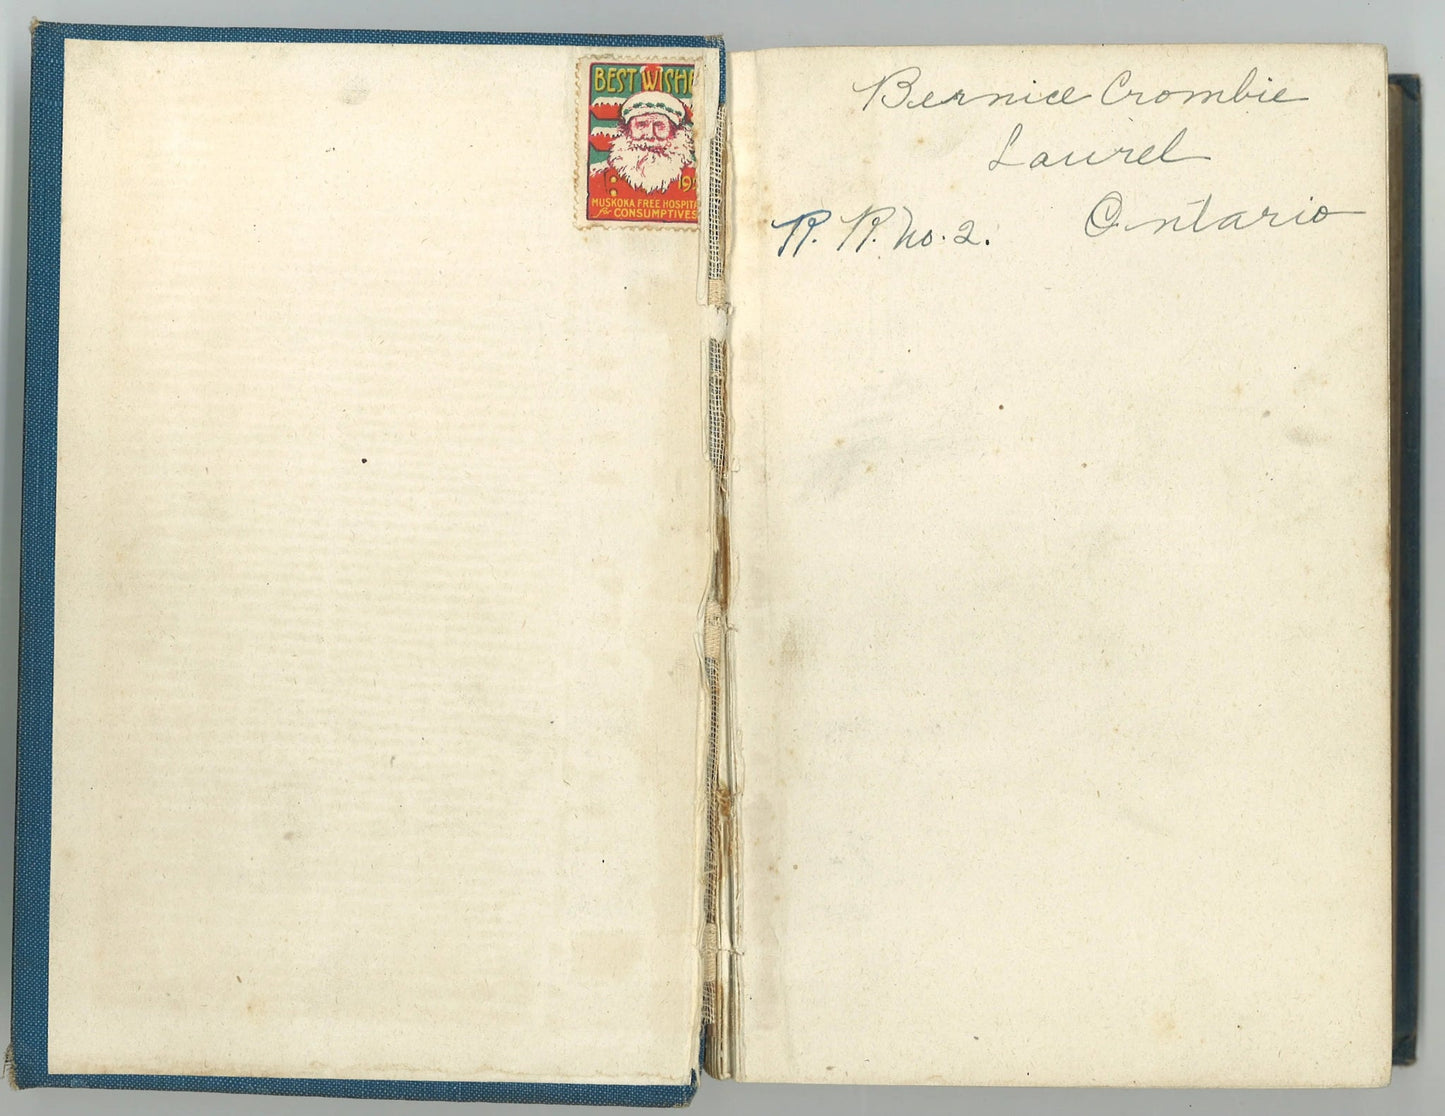 BEST WISHE
19
MUSKOKA FREE HOSPITA
for CONSUMPTIVES
Bernice Crombie
Laurel
Ontario
R. R. No. 2.